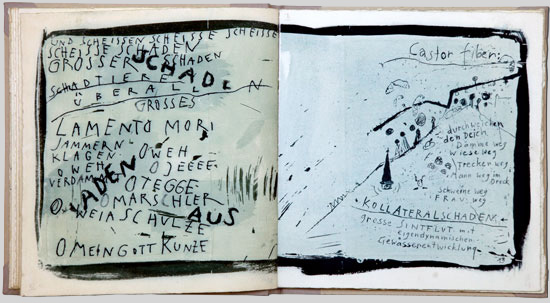 UND SCHEISSEN SCHEISSE SCHEISSE
SCHEISSE SCHADEN
GROSSER SCHADEN
SCHADTIERE
ÜBERALL
GROSSES
LAMENTO MORI
JAMMERN
KLAGEN OWEH
OWEH OJEEEE
VERDAMM
OTEGGE
OMARSCHLER
SCHULZE
AUS
O MEIN GOTT KUNZE
Castor fiber:
durchweichen
den Deich
Dämme weg
Wiese weg
Trecker weg
Mann weg im
Dreck
Schweine weg
FRAU weg
KOLLATERALSCHADEN
grosse SINTFLUT mit
eigendynamischer
Gewässerentwicklung